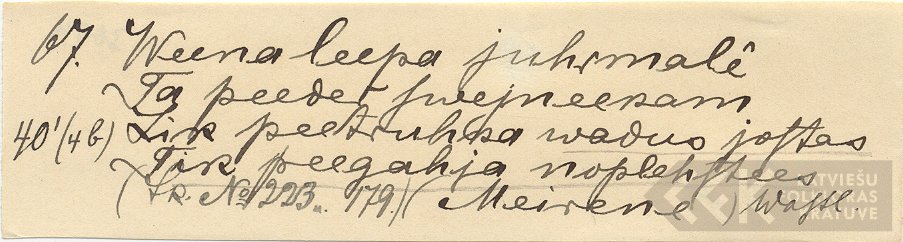 67. Weena leepa juhrmalê
Ta peeder swejneekam
40' (4b) Lik peetruhka wadus jostas
Tik peegahja noplehstees
(Tr. No 223 „ 179.) (Meirene) Wajsl.
LATVIEŠU
FOLKLORAS
KRATUVE